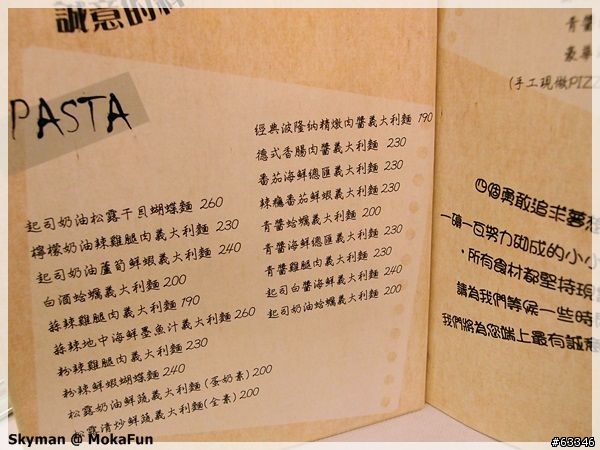 誠意的料
PASTA
起司奶油松露干貝蝴蝶麵 260
檸檬奶油辣雞腿肉義大利麵 230
起司奶油蘆筍鮮蝦義大利麵 240
白酒蛤蠣義大利麵 200
蒜辣雞腿肉義大利麵 190
蒜辣地中海鮮墨魚汁義大利麵 260
粉辣雞腿肉義大利麵 230
粉辣鮮蝦蝴蝶麵 240
松露奶油鮮蔬義大利麵(蛋奶素) 200
松露清炒鮮蔬義大利麵(全素) 200
經典波隆納精燉肉醬義大利麵 190
德式香腸肉醬義大利麵 230
番茄海鮮總匯義大利麵 230
辣椒番茄鮮蝦義大利麵 230
青醬蛤蠣義大利麵 200
青醬海鮮總匯義大利麵 240
青醬雞腿肉義大利麵 230
起司白醬海鮮義大利麵 240
起司奶油蛤蠣義大利麵 200
青醬
豪華
(手工現做PIZZ
四個勇敢追求夢想
一磚一瓦努力砌成的小小
·所有食材都堅持現
請為我們等候一些時
我們將為您端上最有誠意
Skyman @ MokaFun
#63346